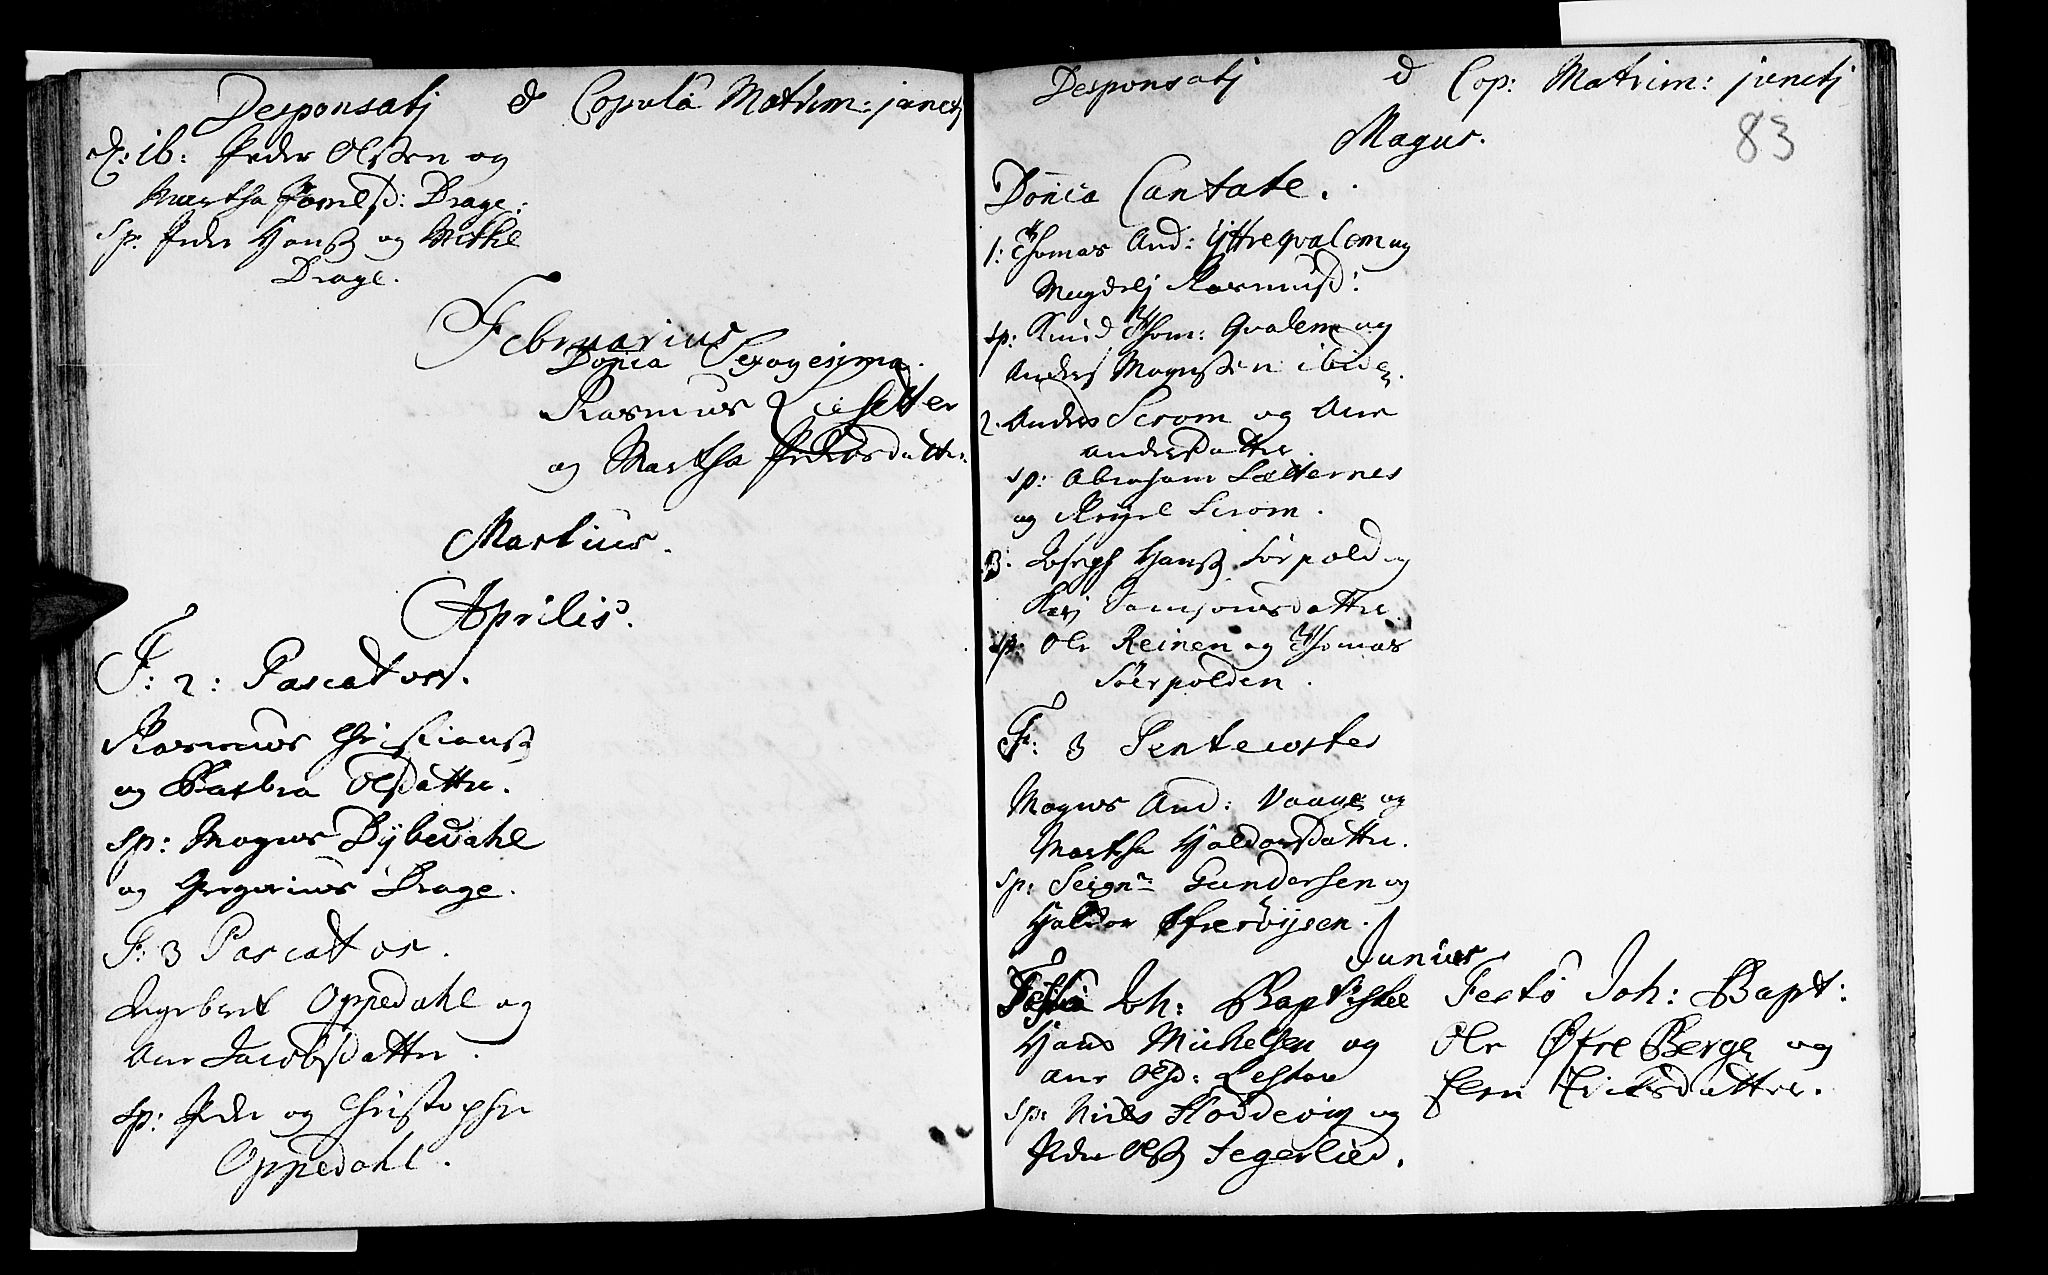 Desponsatj & Copulâ Matrim: junctj
D: ib: Peder Olssen og
Martha Joensd: Drage:
sp. Peder Hanss og Mikkel
Drage.
Februarius
Donica Sexagesima.
Rasmus Liesetter
og Martha Pedersdatter.
Martius.
Aprilis.
F: 2: Pascatos.
Rasmus Christianss
og Barbra Olsdatter.
sp: Magnus Dybedahl
og Gregorius Drage.
F: 3 Pascatos.
Ingebret Oppedahl og
Ane Jacobsdatter.
sp: Peder og Christopher
Oppedahl.
Desponsatj & Cop: Matrim: junctj
83
Majus.
Donica Cantate.
1: Thomas And: Yttreqvalem og
Magdelj Rasmusd:
sp: Knud Thom: Qvalem og
Anders Monssen ibid.
2. Anders Scrom og Ane
Andersdatter.
sp: Abraham Sætternes
og Scrom.
3. Joseph Hanss Sørpold og
Kari Samsonsdatter
sp: Ole Reinen og Thomas
Søerpolden.
F: 3 Pentecostes
Magnus And: Vaage og
Martha Haldorsdatter.
sp: Seignr Gundersen og
Haldor Øfrevijsen.
Junius
Festo Joh: Baptistæ
Hans Michelsen og
Ane Olsd: Lestou
sp: Niels Hoddevig og
Peder Olss Segerlied.
Festo Joh: Bapt:
Ole Øfre Berge og
Eli Ericksdatter.